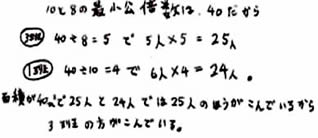 10と8の最小公倍数は、40だから
3班 40÷8=5 で 5人×5=25人
1班 40÷10=4で 6人×4=24人。
面積が40m²で25人と24人では25人のほうがこんでいるから
3班の方がこんでいる。